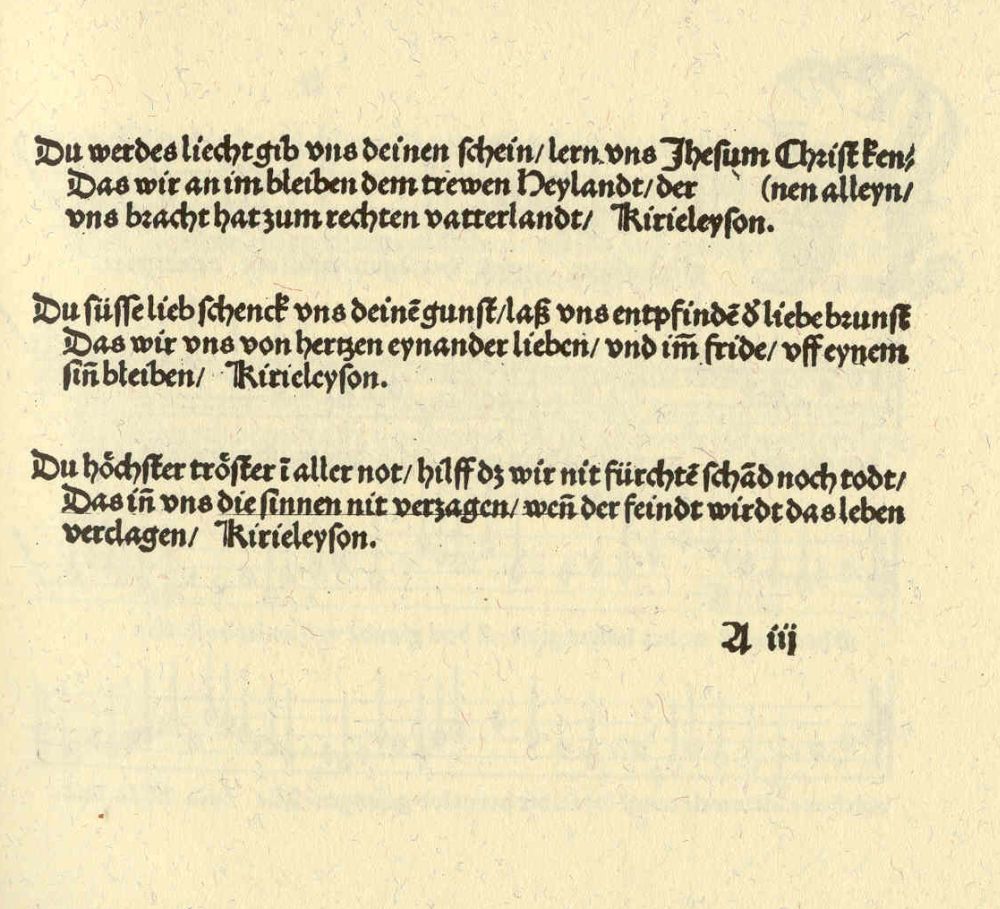 Du werdes liecht gib vns deinen schein/ lern vns Jhesum Christ ken⸗
Das wir an im bleiben dem trewen Heylandt/ der (nen alleyn/
vns bracht hat zum rechten vatterlandt/ Kirieleyson.
Du süsse lieb schenck vns deinē gunst/ laß vns entpfindē d̕ liebe brunst
Das wir vns von hertzen eynander lieben/ vnd im̄ fride/ vff eynem
sin̄ bleiben/ Kirieleyson.
Du höchster tröster ī aller not/ hilff dz wir nit fürchtē schād noch todt/
Das in̄ vns die sinnen nit verzagen/ wen̄ der feindt wirdt das leben
verclagen/ Kirieleyson.
A iij